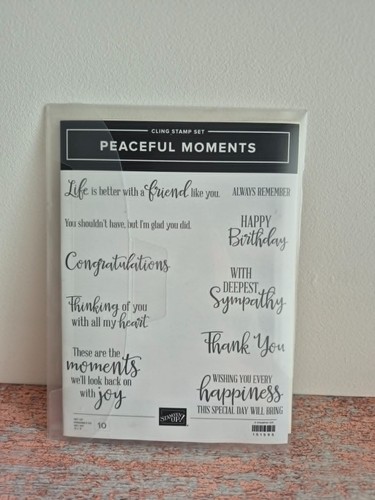 CLING STAMP SET
PEACEFUL MOMENTS
Life is better with a friend like you.
ALWAYS REMEMBER
You shouldn't have, but I'm glad you did.
HAPPY
Birthday
Congratulations
WITH
DEEPEST
Sympathy
Thinking of you
with all my heart
Thank You
These are the
moments
we'll look back on
with joy
WISHING YOU EVERY
happiness
THIS SPECIAL DAY WILL BRING
STAMPIN' UP!
10